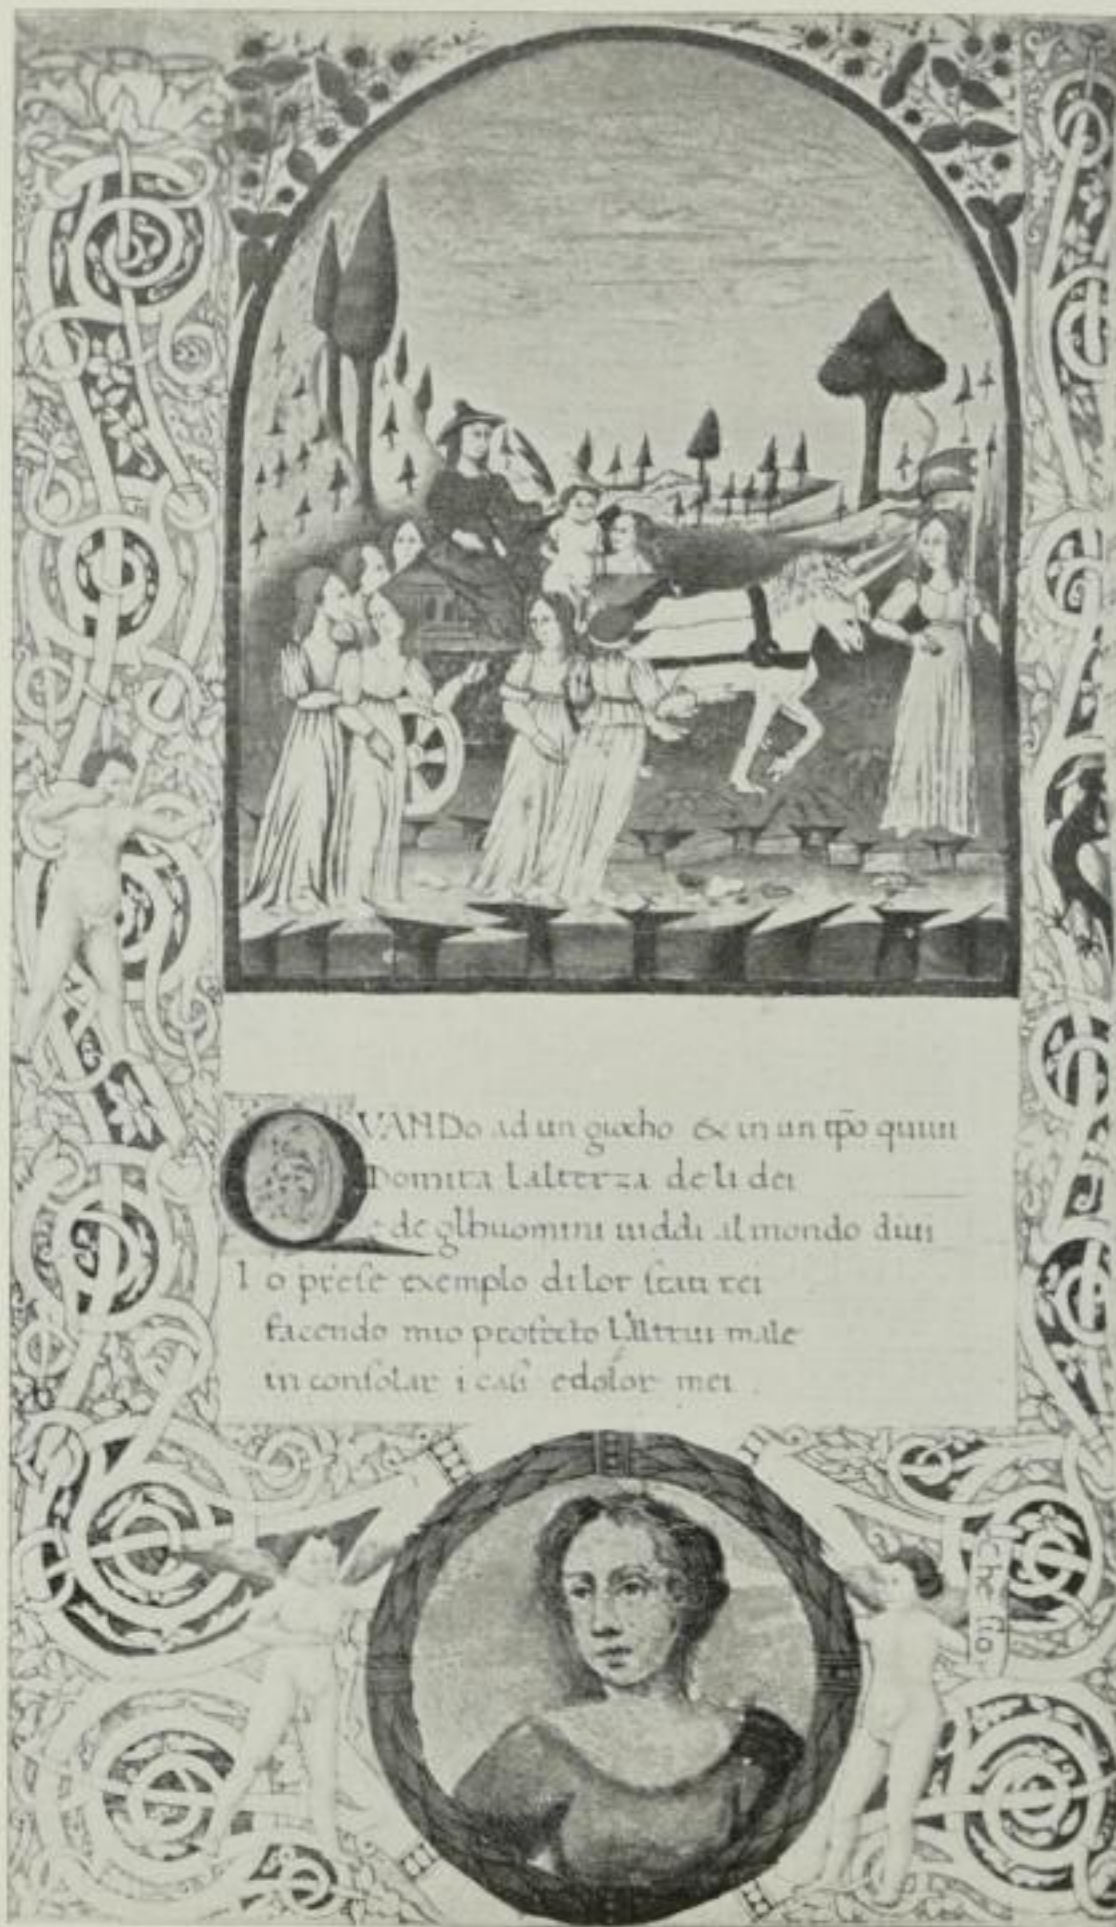 QVANDo ad un giocho & in un tp̄o quiui
Domita lalterza de li dei
& de glhuomini uiddi al mondo diui
I o prese exemplo di lor stati rei
facendo mio profecto l'altrui male
in consolar i casi e dolor mei.